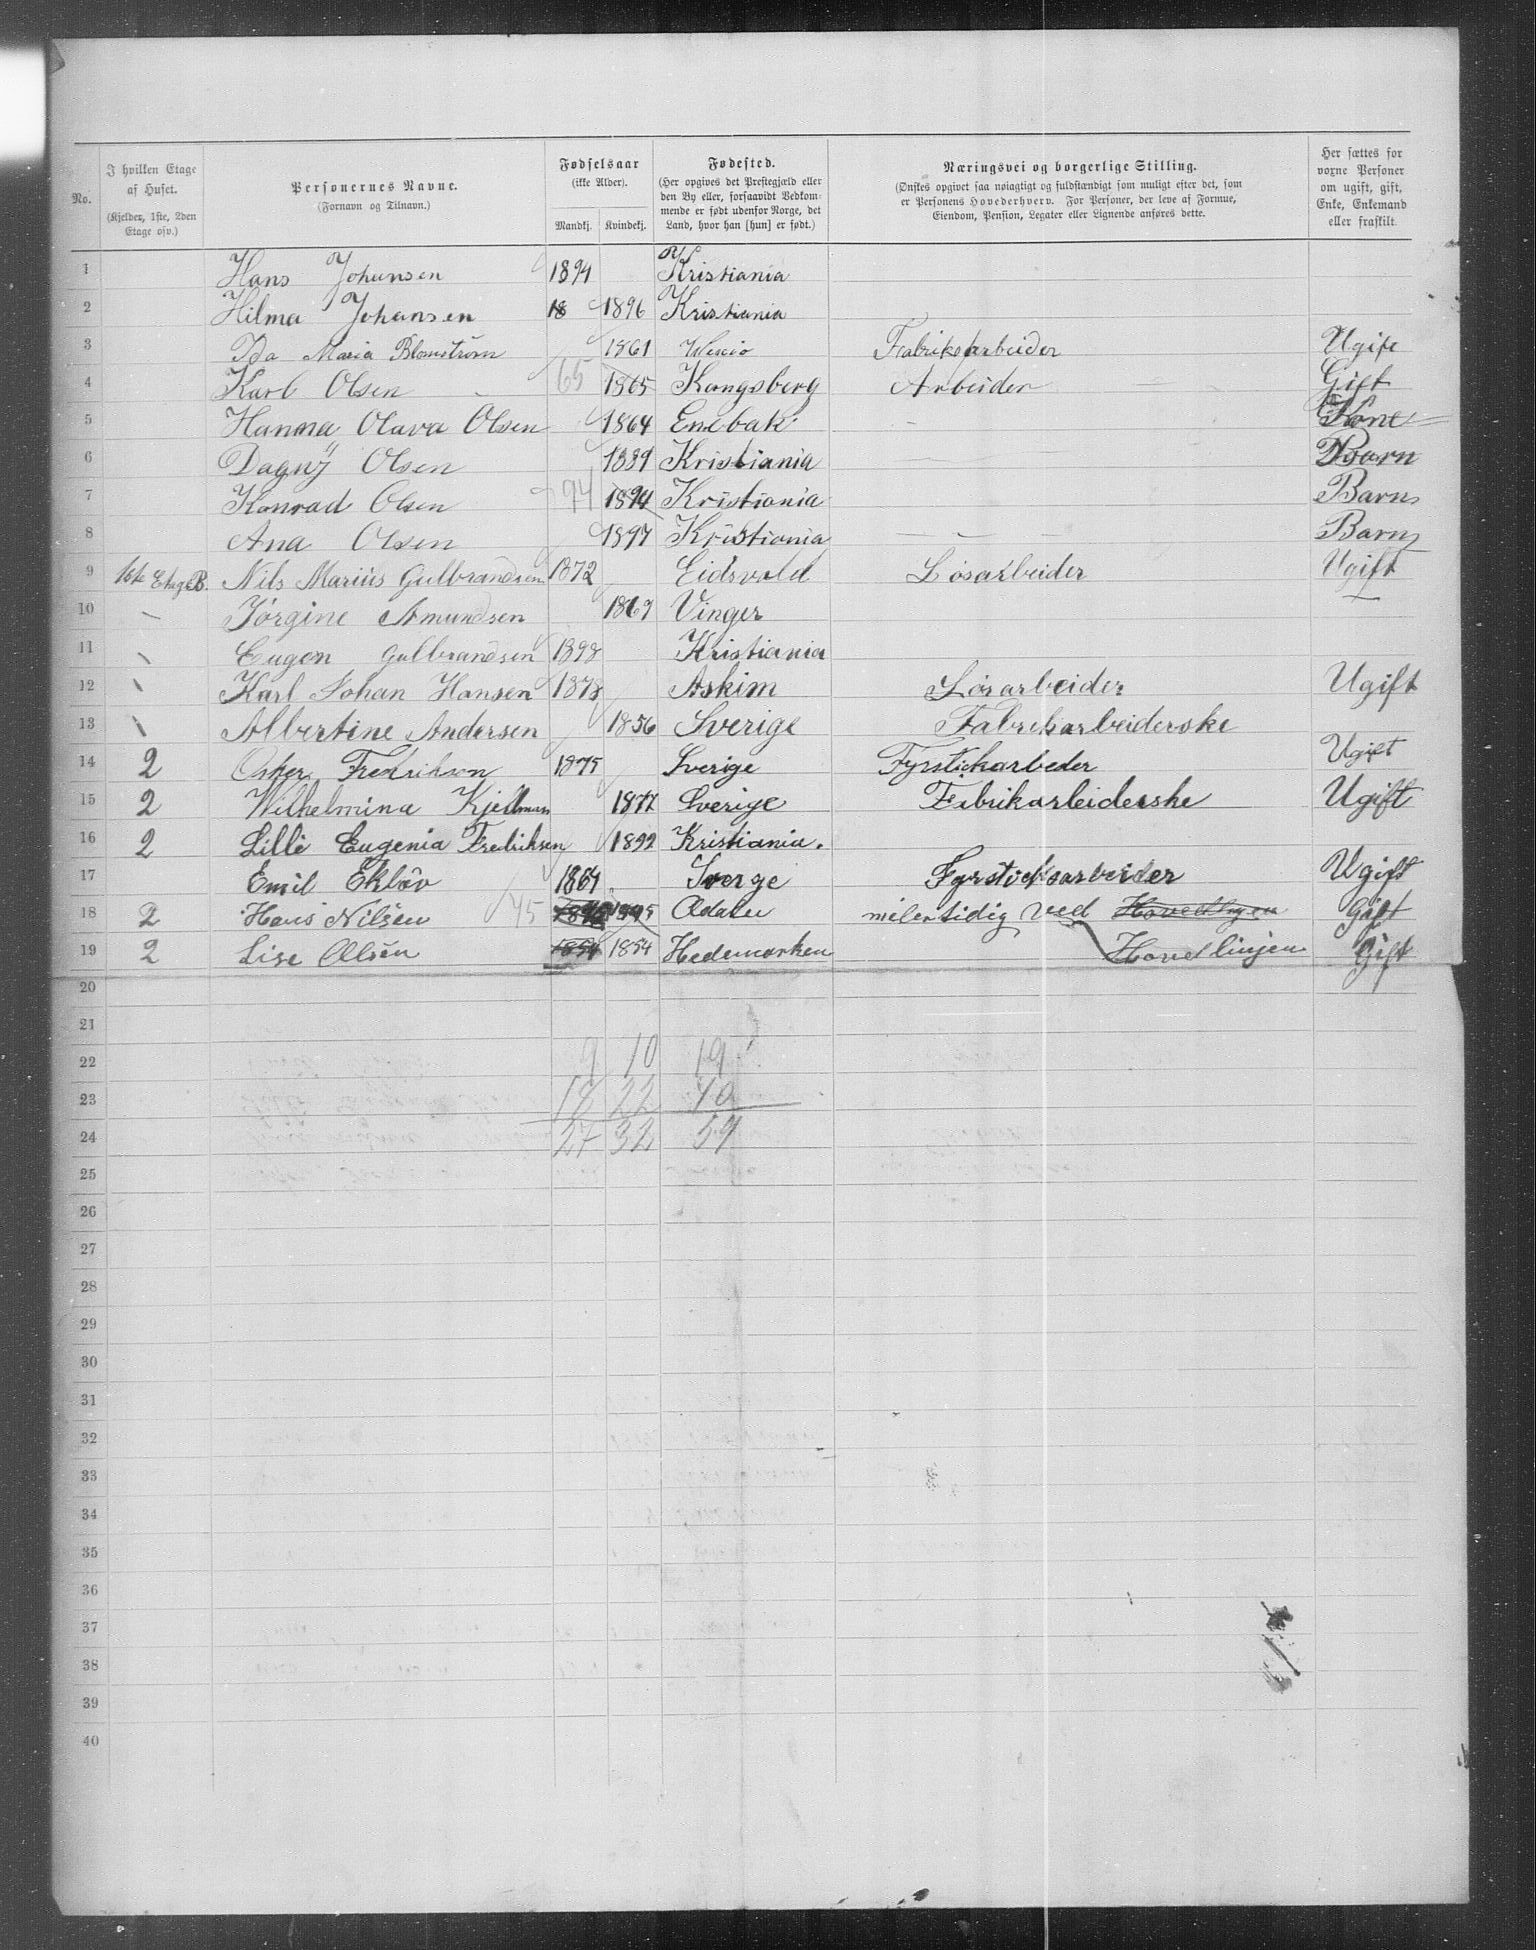 No. | I hvilken Etage af Huset. (Kjelder, 1ste, 2den Etage osv.) | Personernes Navne. (Fornavn og Tilnavn.) | Fødselsaar (ikke Alder). Mandkj. | Kvindekj. | Fødested. (Her opgives det Prestegjæld eller den By eller, forsaavidt Vedkommende er født udenfor Norge, det Land, hvor han [hun] er født.) | Næringsvei og borgerlige Stilling. (Ønskes opgivet saa nøiagtigt og fuldstændigt som muligt efter det, som er Personens Hovederhverv. For Personer, der leve af Formue, Eiendom, Pension, Legater eller Lignende anføres dette. | Her sættes for voxne Personer om ugift, gift, Enke, Enkemand eller fraskilt.
1 Hans Johansen 1894 Kristiania
2 Hilma Johansen 18 1896 Kristiania
3 Ida Maria Blomström 1861 Wexio Fabrikarbeider Ugift
4 Karl Olsen 65 1865 Kongsberg Arbeider Gift
5 Hanna Olava Olsen 1864 Enebak Kone
6 Dagny Olsen 1889 Kristiania Barn
7 Konrad Olsen 94 1894 Kristiania Barn
8 Ana Olsen 1897 Kristiania Barn
9 1ste Etage B. Nils Marius Gulbrandsen 1872 Eidsvold Løsarbeider Ugift
10 — Jørgine Amundsen 1869 Vinger —
11 \ Eugen Gulbrandsen 1898 Kristiania
12 \ Karl Johan Hansen 1878 Askim Løsarbeider Ugift
13 \ Albertine Andersen 1856 Sverige Fabrikarbeiderske
14 2 Osker Fredrikson 1875 Sverige Fyrstickarbeder Ugift
15 2 Wilhelmina Kjellman 1877 Sverige Fabrikarbeiderske Ugift
16 2 Lilli Eugenia Fredriksen 1899 Kristiania.
17 Emil Eklöv 1864 Sverge Fyrsticksarbeider Ugift
18 2 Hans Nilsen 45 1845 Odalen milertidig ved Gift
19 2 Lise Olsen 1854 1854 Hedemarken Hovedlinjen Gift
20
21
22 9 10 19
23 18 22 40
24 27 32 59
25
26
27
28
29
30
31
32
33
34
35
36
37
38
39
40